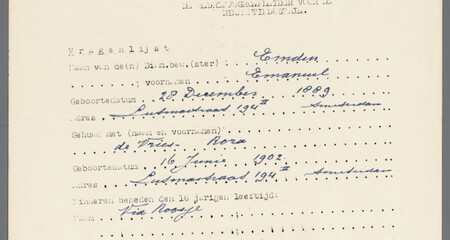 Vragenlijst
Naam van de(n) Dien.bew.(ster) : Emden
: voornamen Emanuel
Geboortedatum 28 December 1889
Adres Lutmastraat 194 II Amsterdam
Gehuwd met (naam en voornamen)
de Vries Roza
Geboortedatum 16 Junie 1902
Adres Lutmastraat 194 II Amsterdam
Kinderen beneden den 16 jarigen leeftijd:
Naam